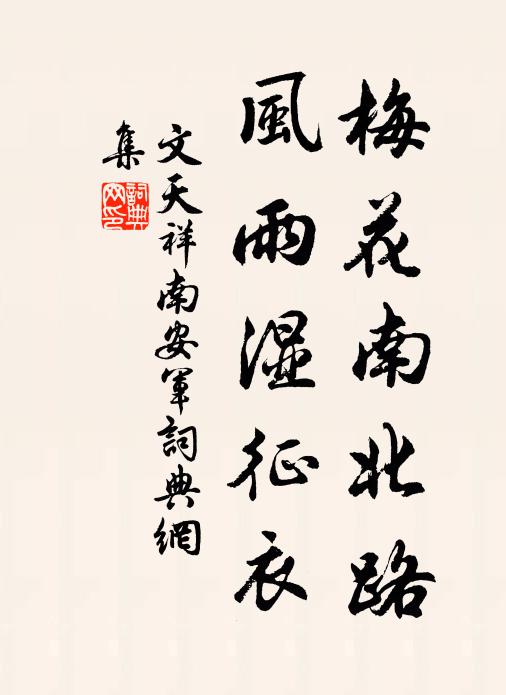 梅花南北路
風雨濕征衣
文天祥南安軍詞典網
集
詞典
网印